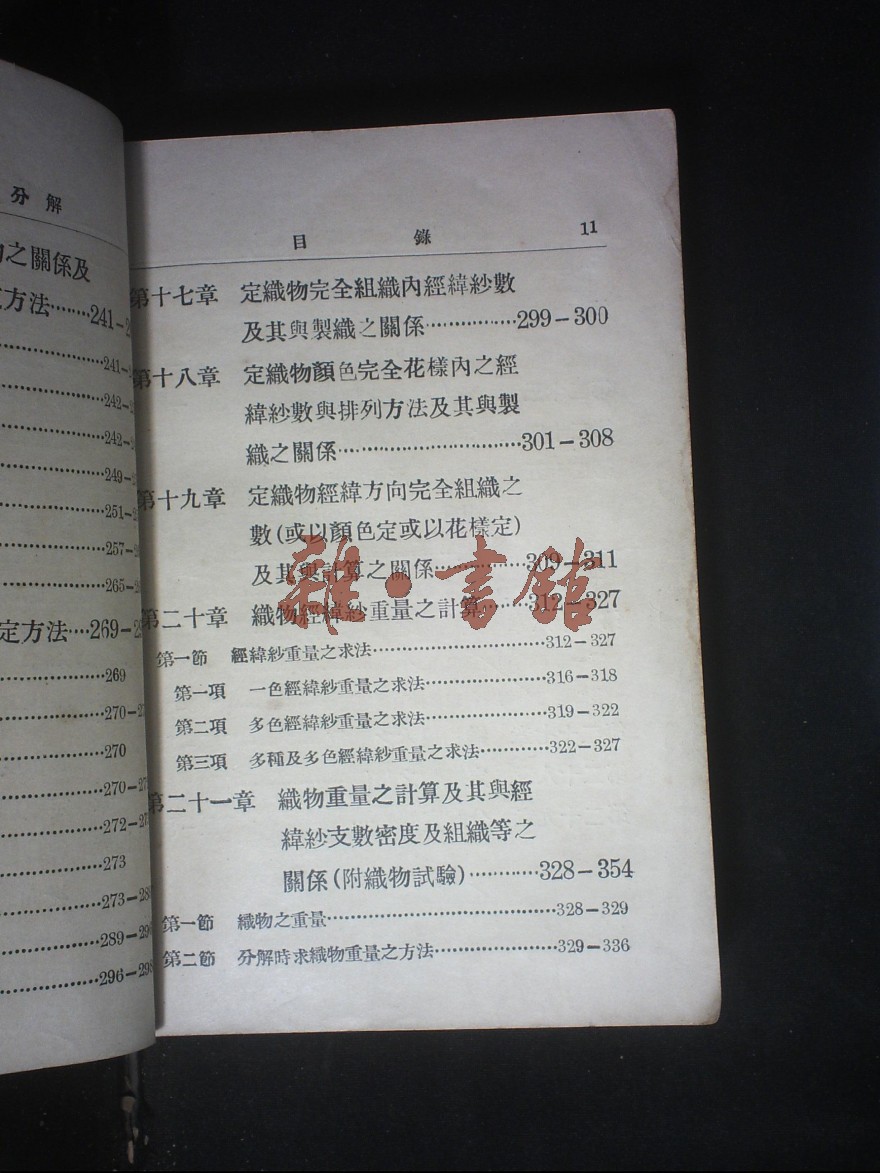 分解
之關係及
方法········241—
241—
242—
242—
249—
251—
257—
265—
定方法····269—
269
270—
270
270—
272—
273
273—
289—
296—298
目 錄 11
第十七章 定織物完全組織內經緯紗數
及其與製織之關係···············299—300
第十八章 定織物顏色完全花樣內之經
緯紗數與排列方法及其與製
織之關係······························301—308
第十九章 定織物經緯方向完全組織之
數(或以顏色定或以花樣定)
及其與計算之關係··············309—311
第二十章 織物經緯紗重量之計算········312—327
第一節 經緯紗重量之求法······························312—327
第一項 一色經緯紗重量之求法·····················316—318
第二項 多色經緯紗重量之求法·····················319—322
第三項 多種及多色經緯紗重量之求法············322—327
第二十一章 織物重量之計算及其與經
緯紗支數密度及組織等之
關係(附織物試驗)············328—354
第一節 織物之重量·······································328—329
第二節 分解時求織物重量之方法·····················329—336
雜·書館